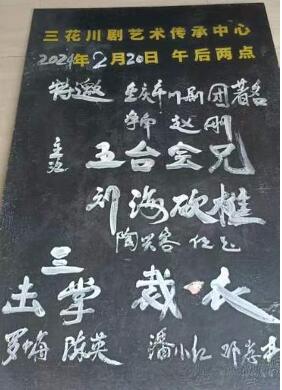 三花川剧艺术传承中心
2024年2月20日 午后两点
特邀 重庆市川剧团著名
赵刚
主演 五台会兄
刘海砍樵
陶兴容
三
击掌 裁·衣
罗梅 陈英 潘小红